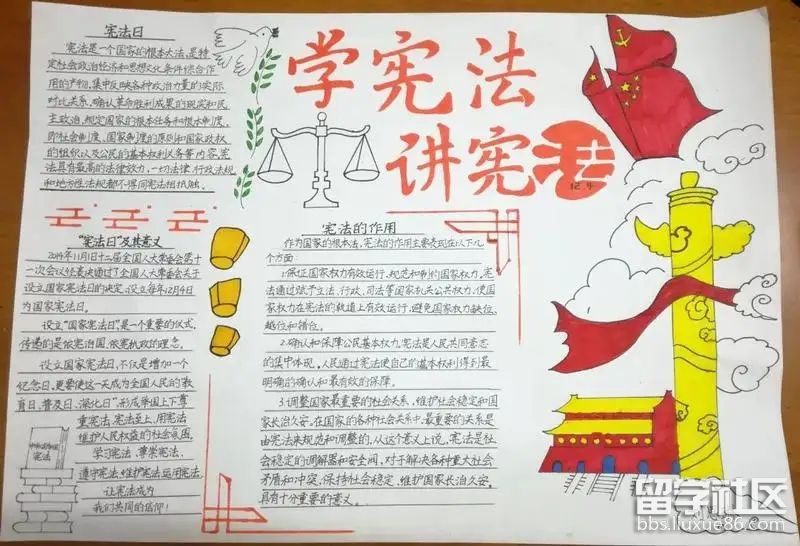 学宪法
讲宪法
12.4
宪法日
宪法是一个国家的根本大法,是特
定社会政治经济和思想文化条件综合作
用的产物,集中反映各种政治力量的实际
对比关系,确认革命胜利成果的现实和民
主政治,规定国家的根本任务和根本制度,
即社会制度、国家制度的原则和国家政权
的组织以及公民的基本权利义务等内容,宪
法具有最高的法律效力,一切法律、行政法规
和地方性法规都不得同宪法相抵触。
"宪法日"及其意义
2014年11月1日十二届全国人大常委会第十
一次会议经表决通过了全国人大常委会关于
设立国家宪法日的决定,设立每年12月4日
为国家宪法日。
设立"国家宪法日"是一个重要的仪式,
传递的是依宪治国、依宪执政的理念。
设立国家宪法日,不仅是增加一个
纪念日,更要使这一天成为全国人民的教
育日、普及日、深化日",形成举国上下尊
重宪法、宪法至上、用宪法
维护人民权益的社会氛围。
学习宪法、尊崇宪法、
遵守宪法、维护宪法、运用宪法,
让宪法成为
我们共同的信仰!
宪法
宪法的作用
作为国家的根本法,宪法的作用主要表现在以下几
个方面:
1.保证国家权力有效运行、规范和制约国家权力,宪
法通过赋予立法、行政、司法等国家机关公共权力,使国
家权力在宪法的轨道上有效运行,避免国家权力缺位、
越位和错位。
2.确认和保障公民基本权力,宪法是人民共同意志
的集中体现,人民通过宪法使自己的基本权利得到最
明确的确认和最有效的保障。
3.调整国家最重要的社会关系,维护社会稳定和国
家长治久安,在国家的各种社会关系中,最重要的关系是
由宪法来规范和调整的,从这个意义上说,宪法是社
会稳定的调解器和安全阀,对于解决各种重大社会
矛盾和冲突,保持社会稳定,维护国家长治久安,
具有十分重要的意义。
留学社区
bbs.liuxue86.com